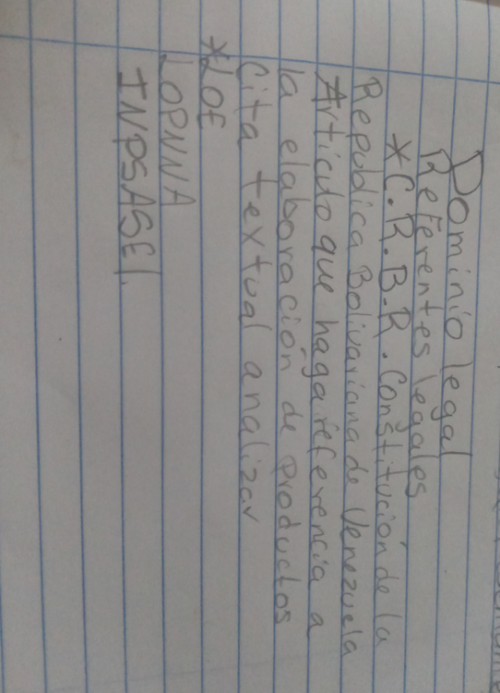 Dominio legal
Referentes legales
*C.R.B.R. Constitución de la
Republica Bolivariana de Venezuela
Artículo que haga referencia a
la elaboración de productos
Cita textual analizar
*LOE
LOPNNA
INPSASEL.